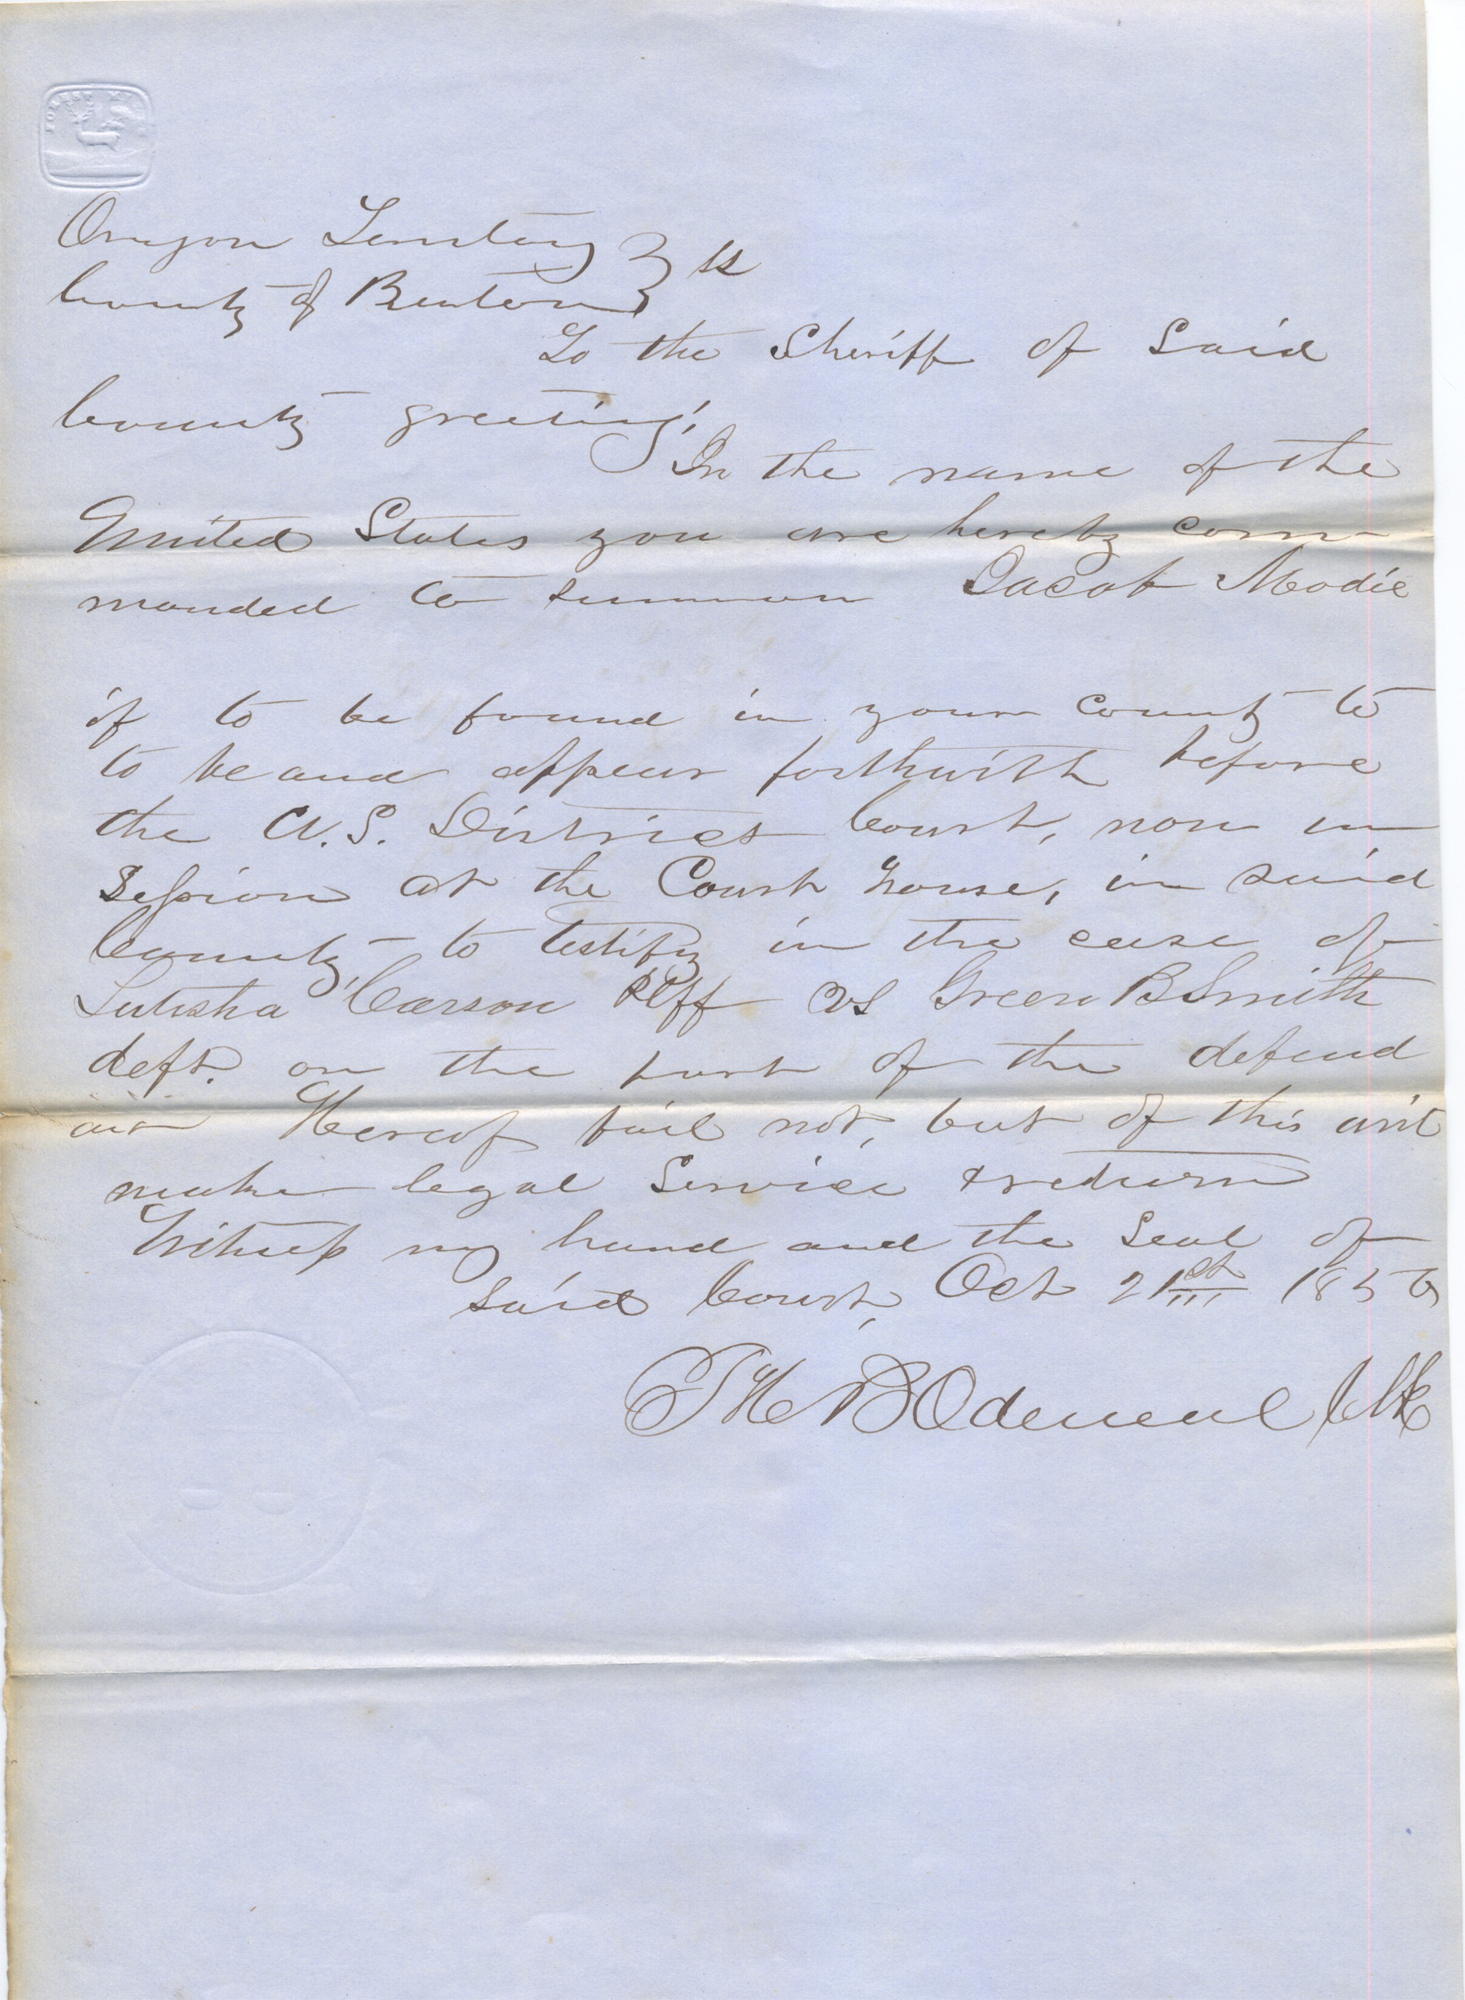 FOREST MI
Oregon Territory } ss
County of Benton }
To the Sheriff of Said
County greeting,
In the name of the
United States you are hereby com-
manded to summon Jacob Modie
if to be found in your County to
to be and appear forthwith before
the U.S. District Court, now in
Session at the Court house, in said
County, to testify in the case of
Lutisha Carson Plff vs Green B Smith
deft. on the part of the defend
ant Hereof fail not, but of this writ
make legal Service & return
Witness my hand and the Seal of
said Court, Oct 21st 1856
T H B Odeneal Clk